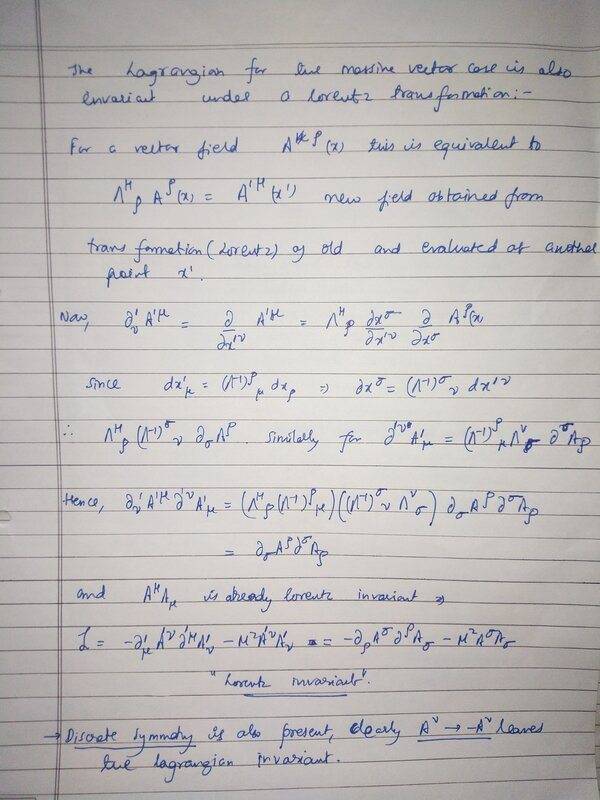 The Lagrangian for the massive vector case is also
invariant under a Lorentz transformation:-
For a vector field A^ρ(x) this is equivalent to
Λ^μ_ρ A^ρ(x) = A'^μ(x') new field obtained from
transformation (Lorentz) of old and evaluated at another
point x'.
Now, ∂'_ν A'^μ = ∂/∂x'^ν A'^μ = Λ^μ_ρ ∂x^σ/∂x'^ν ∂/∂x^σ A^ρ(x
since dx'_μ = (Λ^-1)^ρ_μ dx_ρ ⇒ ∂x^σ = (Λ^-1)^σ_ν dx'^ν
∴ Λ^μ_ρ (Λ^-1)^σ_ν ∂_σ A^ρ. Similarly for ∂'^ν A'_μ = (Λ^-1)^ρ_μ Λ^ν_σ ∂^σ A_ρ
Hence, ∂'_ν A'^μ ∂'^ν A'_μ = (Λ^μ_ρ (Λ^-1)^ρ_μ) ((Λ^-1)^σ_ν Λ^ν_σ) ∂_σ A^ρ ∂^σ A_ρ
= ∂_σ A^ρ ∂^σ A_ρ
and A^μ A_μ is already lorentz invariant ⇒
L = -∂'_μ A'^ν ∂'^μ A'_ν - M² A'^ν A'_ν = -∂_ρ A^σ ∂^ρ A_σ - M² A^σ A_σ
"Lorentz invariant".
→ Discrete symmetry is also present, clearly A^ν → -A^ν leaves
the lagrangian invariant.